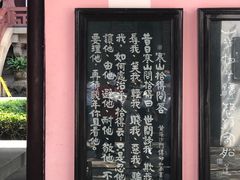 寒山拾得問答
昔日寒山問拾得曰世間謗我、欺我、
辱我、笑我、輕我、賤我、惡我、騙
我、如何處治乎拾得云只是忍他、
讓他、由他、避他、耐他、敬他、不
要理他、再待幾年你且看他